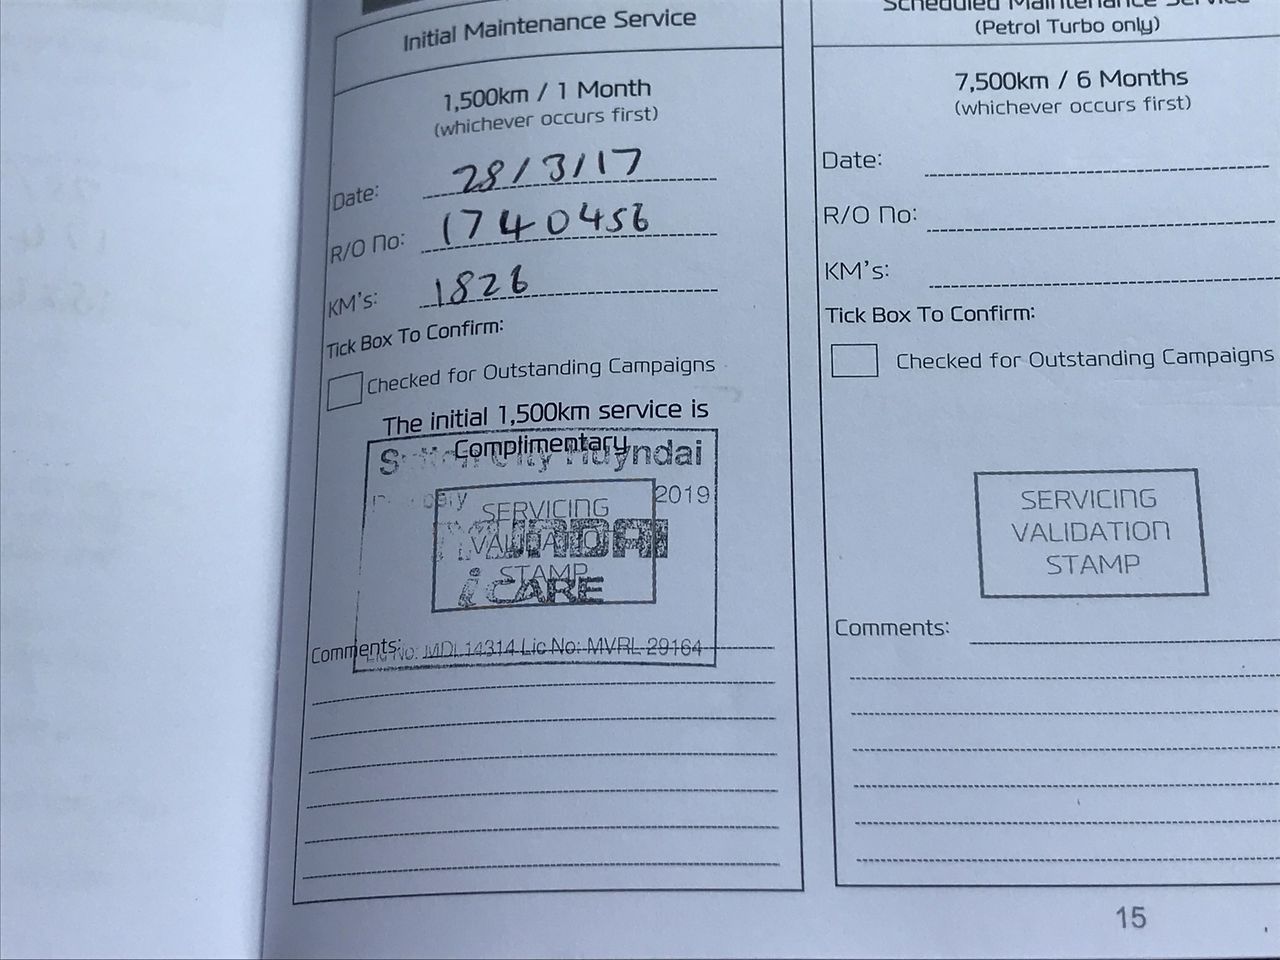 Initial Maintenance Service
1,500km / 1 Month
(whichever occurs first)
Date: 28/3/17
R/O No: 1740456
KM's: 1826
Tick Box To Confirm:
Checked for Outstanding Campaigns
The initial 1,500km service is
Complimentary
City Huyndai
2019
SERVICING
VALIDATION
STAMP
iCARE
Comments:
Lic No: MDL 14314 Lic No: MVRL 29164
Scheduled Maintenance Service
(Petrol Turbo only)
7,500km / 6 Months
(whichever occurs first)
Date:
R/O No:
KM's:
Tick Box To Confirm:
Checked for Outstanding Campaigns
SERVICING
VALIDATION
STAMP
Comments:
15